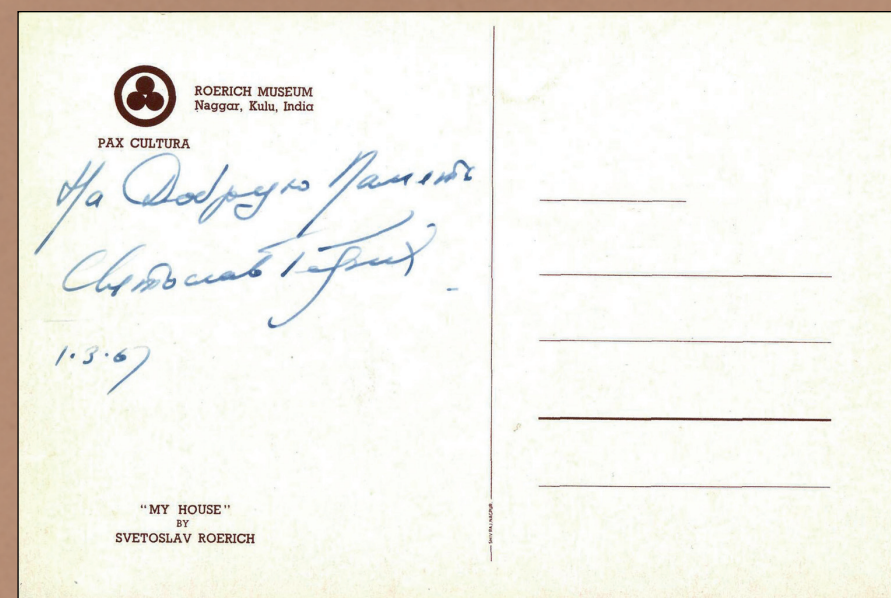 ROERICH MUSEUM
Naggar, Kulu, India
PAX CULTURA
На Добрую Память
Святослав Рерих
1.3.67
"MY HOUSE"
BY
SVETOSLAV ROERICH